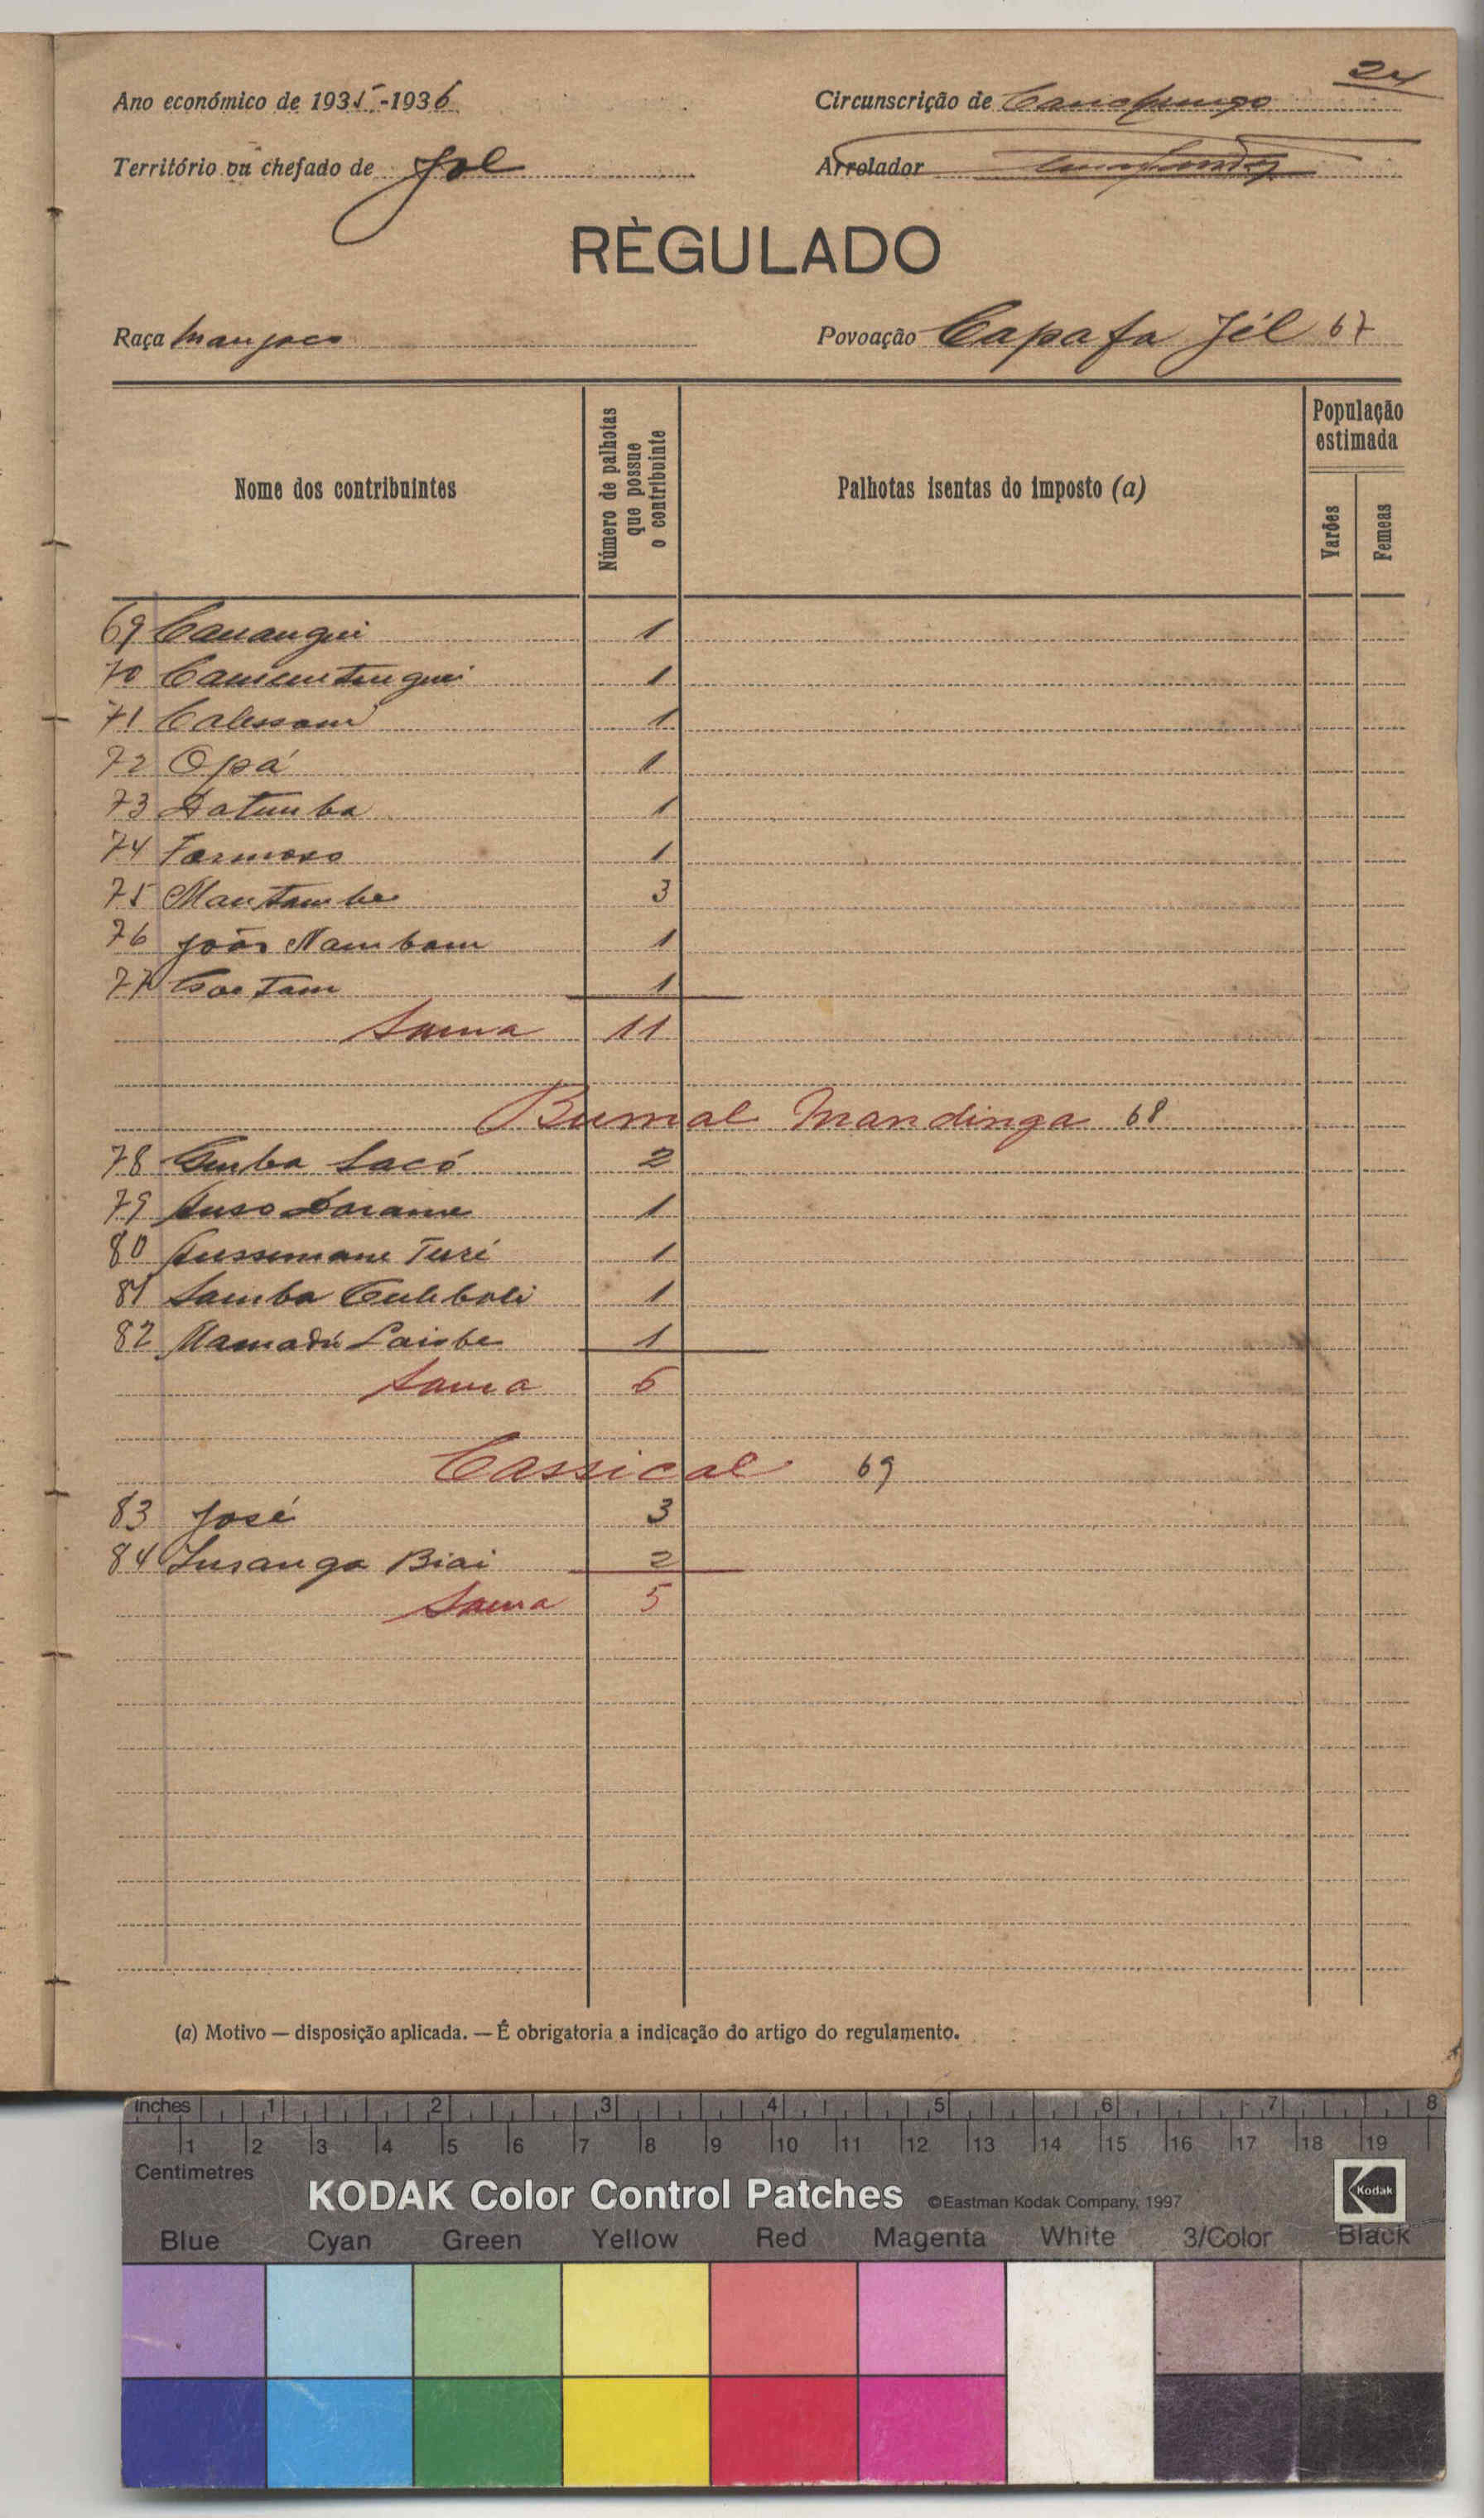 24
Ano económico de 1935-1936 Circunscrição de Canchungo
Território ou chefado de Jol Arrolador
RÈGULADO
Raça Manjaco Povoação Capafa Jél 67
Nome dos contribuintes
Número de palhotas que possue o contribuinte
Palhotas isentas do imposto (a)
População estimada
Varões
Femeas
69 Canangui 1
70 1
71 1
72 Opá 1
73 Datumba 1
74 Formoso 1
75 Mantambe 3
76 João Nambam 1
77 Caetam 1
Soma 11
Bumal Mandinga 68
78 Sacó 2
79 1
80 Turé 1
81 Samba 1
82 Mamadú 1
Soma 6
Cassical 69
83 José 3
84 Biai 2
Soma 5
(a) Motivo — disposição aplicada. — É obrigatoria a indicação do artigo do regulamento.
Inches 1 2 3 4 5 6 7 8
1 2 3 4 5 6 7 8 9 10 11 12 13 14 15 16 17 18 19
Centimetres
KODAK Color Control Patches ©Eastman Kodak Company, 1997 Kodak
Blue Cyan Green Yellow Red Magenta White 3/Color Black